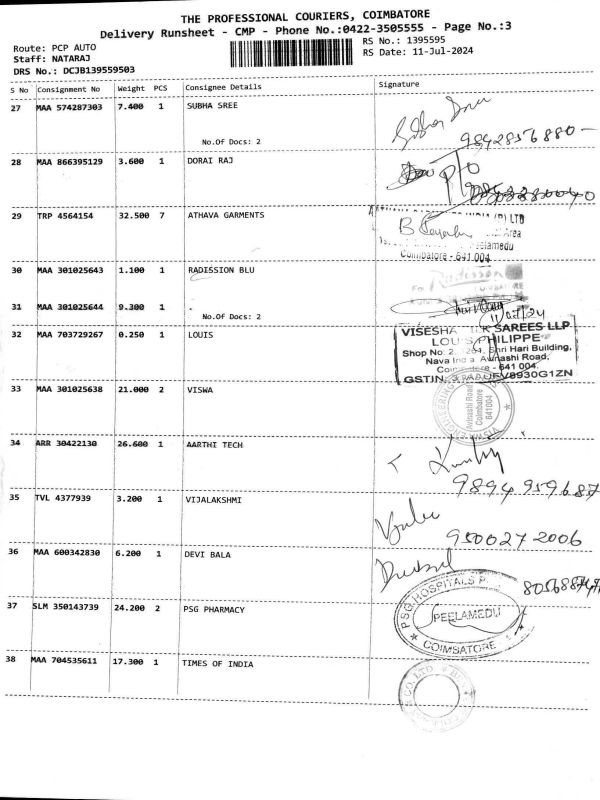 THE PROFESSIONAL COURIERS, COIMBATORE
Delivery Runsheet - CMP - Phone No.:0422-3505555 - Page No.:3
Route: PCP AUTO
RS No.: 1395595
Staff: NATARAJ
RS Date: 11-Jul-2024
DRS No.: DCJB139559503
S No Consignment No Weight PCS Consignee Details Signature
27 MAA 574287303 7.400 1 SUBHA SREE
No.Of Docs: 2
9842856880
28 MAA 866395129 3.600 1 DORAI RAJ
P/O
29 TRP 4564154 32.500 7 ATHAVA GARMENTS
(P) LTD
Area
Peelamedu
Coimbatore - 641 004
30 MAA 301025643 1.100 1 RADISSION BLU
For Radisson
31 MAA 301025644 9.300 1
No.Of Docs: 2
11/07/24
32 MAA 703729267 0.250 1 LOUIS
SAREES LLP
PHILIPPE
Shri Hari Building,
Avinashi Road,
641 004.
33 MAA 301025638 21.000 2 VISWA
Avinashi Road
Coimbatore
641004
34 ARR 30422130 26.600 1 AARTHI TECH
9894959687
35 TVL 4377939 3.200 1 VIJALAKSHMI
9500272006
36 MAA 600342830 6.200 1 DEVI BALA
37 SLM 350143739 24.200 2 PSG PHARMACY
PSG HOSPITALS
PEELAMEDU
COIMBATORE
38 MAA 704535611 17.300 1 TIMES OF INDIA